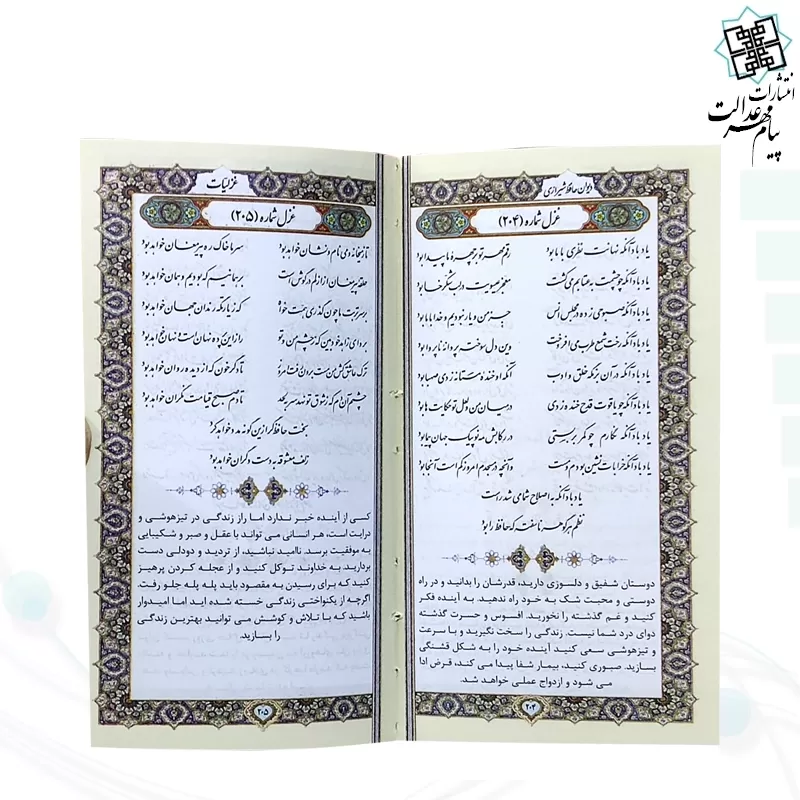 انتشارات
پیام مهر عدالت
دیوان حافظ شیرازی
غزل شماره (۲۰۴)
یاد باد آنکه نهانت نظری با ما بود رقم مهر تو بر چهرهٔ ما پیدا بود
یاد باد آنکه چو چشمت به عتابم می‌کشت معجز عیسویت در لب شکرخا بود
یاد باد آنکه صبوحی زده در مجلس انس جز من و یار نبودیم و خدا با ما بود
یاد باد آنکه رخت شمع طرب می‌افروخت وین دل سوخته پروانه ناپروا بود
یاد باد آنکه در آن بزمگه خلق و ادب آنکه او خنده مستانه زدی صهبا بود
یاد باد آنکه چو یاقوت قدح خنده زدی در میان من و لعل تو حکایت‌ها بود
یاد باد آنکه نگارم چو کمر بربستی در رکابش مه نو پیک جهان پیما بود
یاد باد آنکه خرابات نشین بودم و مست وآنچه در مسجدم امروز کم است آنجا بود
یاد باد آنکه به اصلاح شما می‌شد راست
نظم هر گوهر ناسفته که حافظ را بود
دوستان شفیق و دلسوزی دارید، قدرشان را بدانید و در راه
دوستی و محبت شک به خود راه ندهید. به آینده فکر
کنید و غم گذشته را نخورید. افسوس و حسرت گذشته
دوای درد شما نیست. زندگی را سخت نگیرید و با سرعت
و تیزهوشی سعی کنید آینده خود را به شکل قشنگی
بسازید. صبوری کنید، بیمار شفا پیدا می کند، قرض ادا
می شود و ازدواج عملی خواهد شد.
۲۰۴
غزلیات
غزل شماره (۲۰۵)
تا ز میخانه و می نام و نشان خواهد بود سر ما خاک ره پیر مغان خواهد بود
حلقه پیر مغان از ازلم در گوش است بر همانیم که بودیم و همان خواهد بود
بر سر تربت ما چون گذری همت خواه که زیارتگه رندان جهان خواهد بود
برو ای زاهد خودبین که ز چشم من و تو راز این پرده نهان است و نهان خواهد بود
ترک عاشق‌کش من مست برون رفت امروز تا دگر خون که از دیده روان خواهد بود
چشمم آن دم که ز شوق تو نهد سر به لحد تا دم صبح قیامت نگران خواهد بود
بخت حافظ گر ازین گونه مدد خواهد کرد
زلف معشوقه به دست دگران خواهد بود
کسی از آینده خبر ندارد اما راز زندگی در تیزهوشی و
درایت است، هر انسانی می تواند با عقل و صبر و شکیبایی
به موفقیت برسد. ناامید نباشید، از تردید و دودلی دست
بردارید. به خداوند توکل کنید و از عجله کردن پرهیز
کنید که برای رسیدن به مقصود باید پله پله جلو رفت.
اگرچه از یکنواختی زندگی خسته شده اید اما امیدوار
باشید که با تلاش و کوشش می توانید بهترین زندگی
را بسازید.
۲۰۵